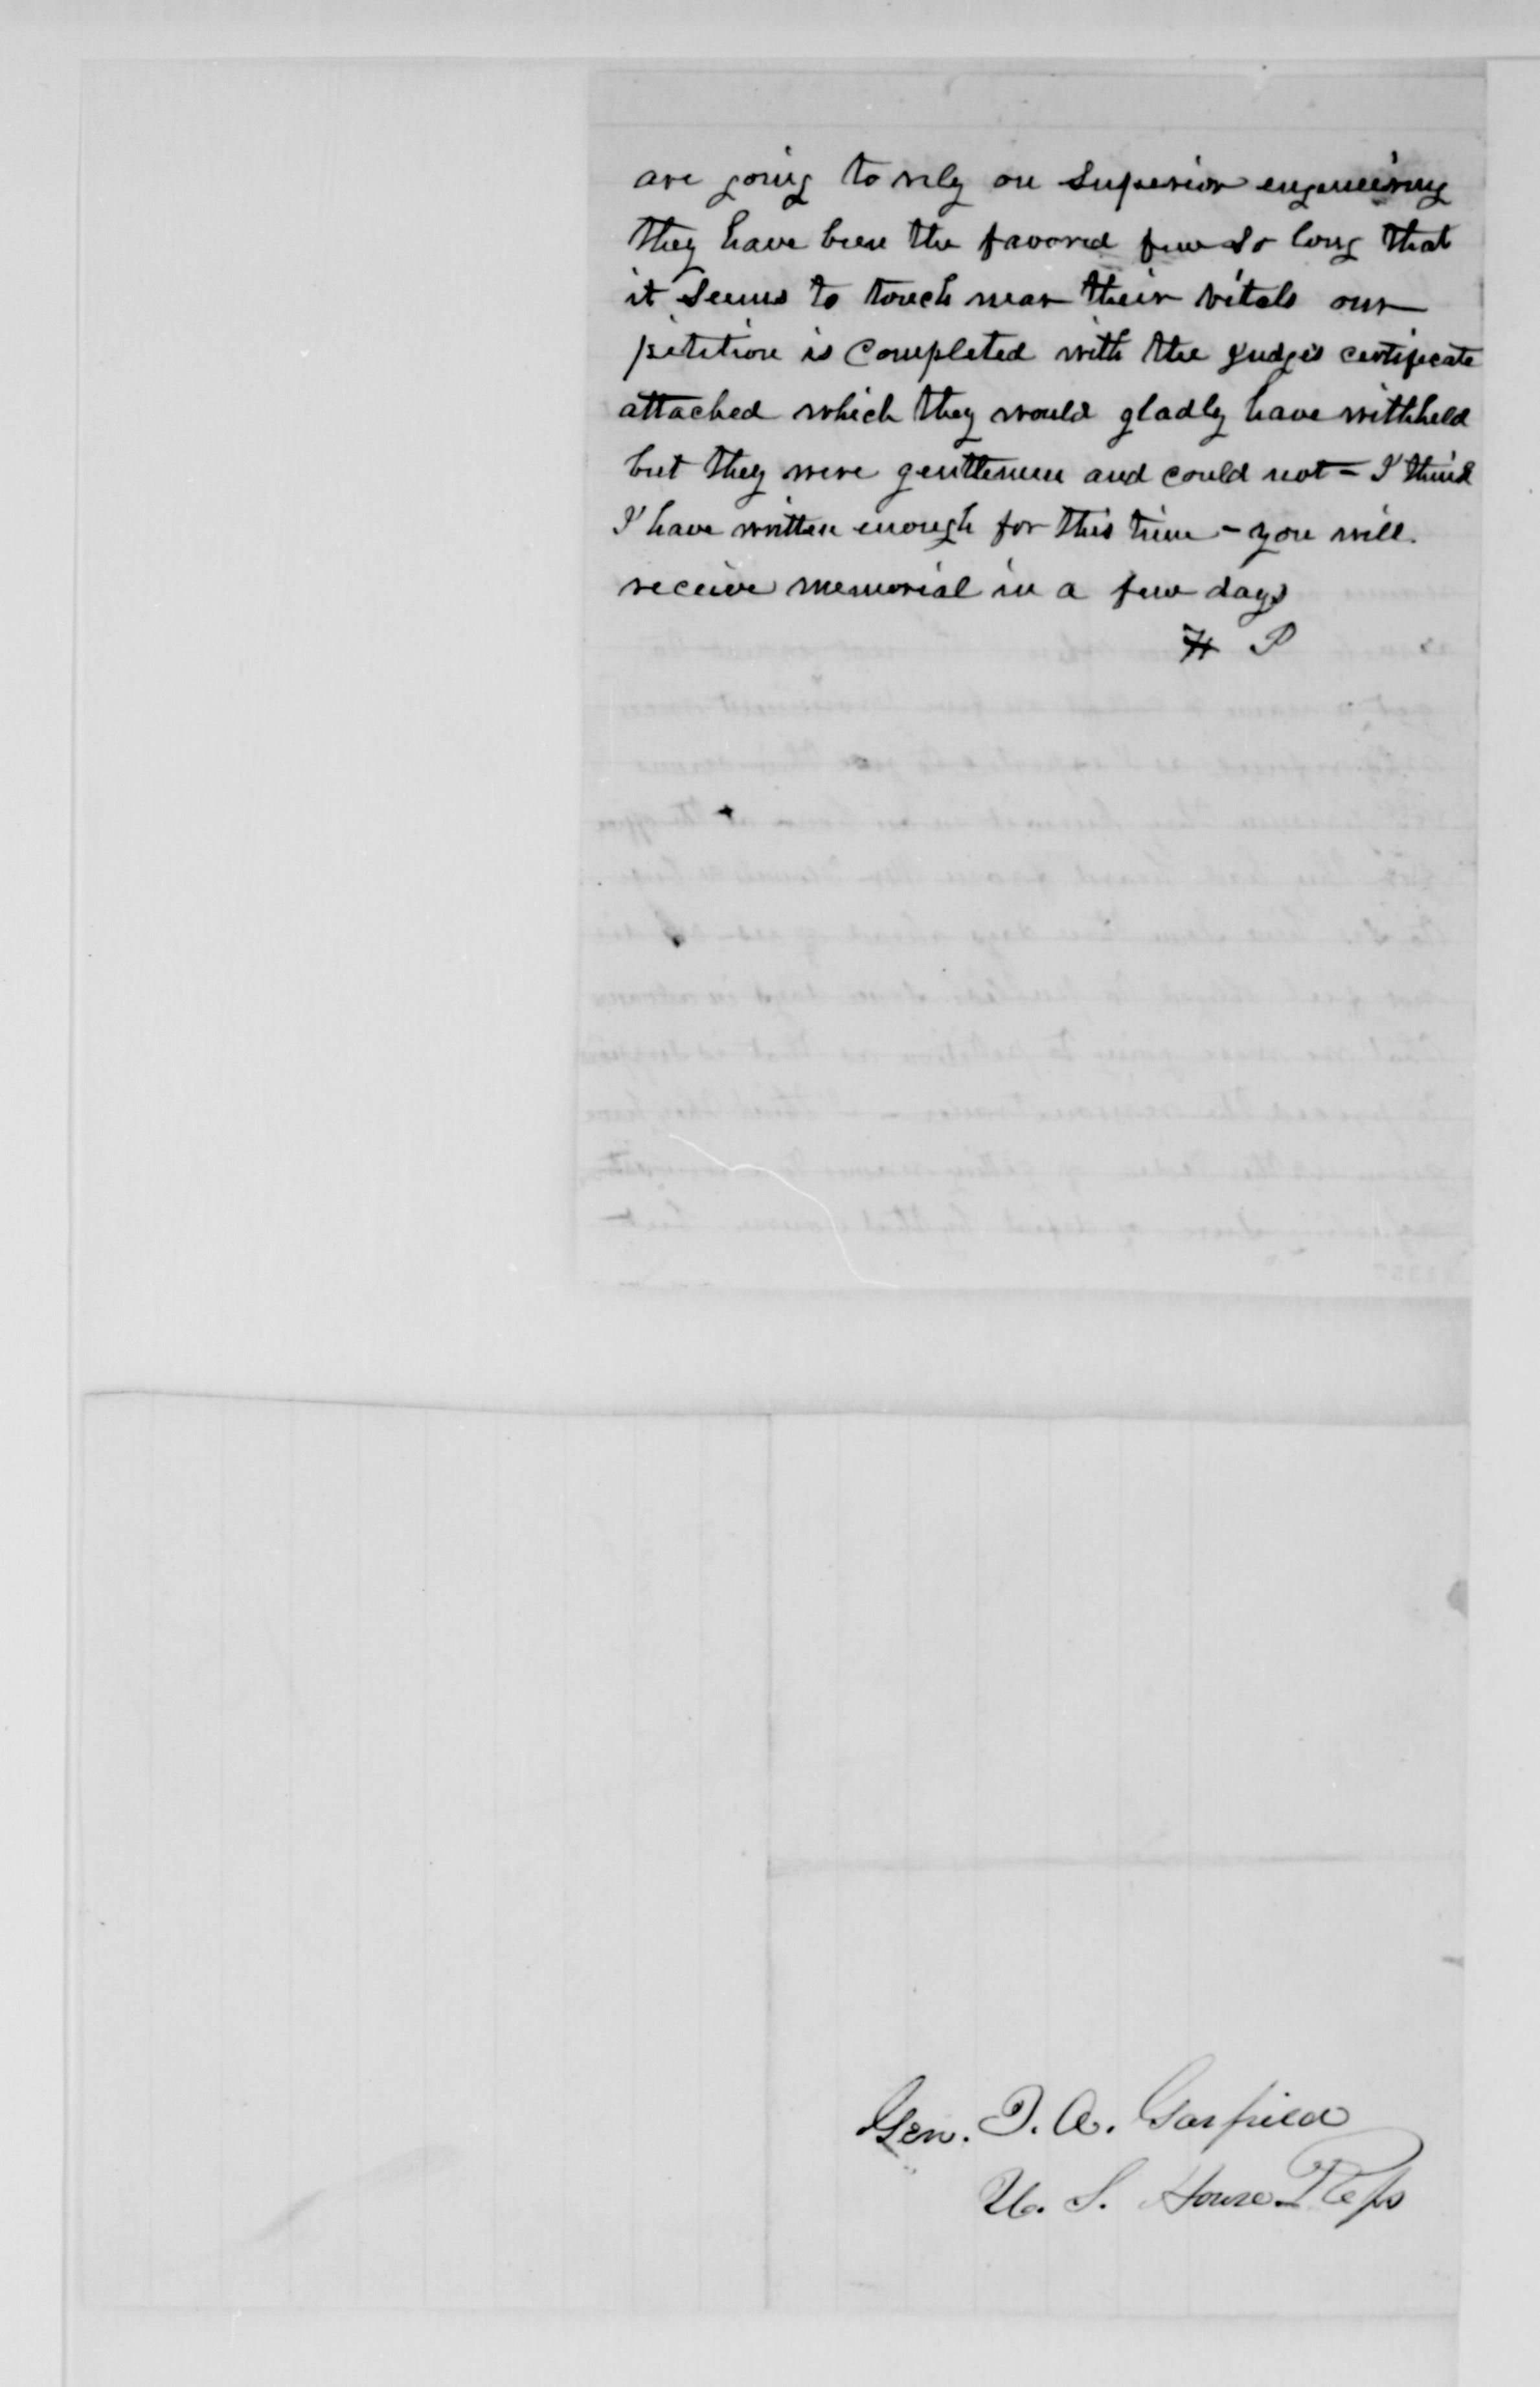 are going to rely on superior engineering
they have been the favored few so long that
it seems to touch near their vitals our
petition is completed with the judges certificate
attached which they would gladly have withheld
but they were gentlemen and could not – I think
I have written enough for this time – you will
receive memorial in a few days
H P
Gen. J. A. Garfield
U. S. House Reps